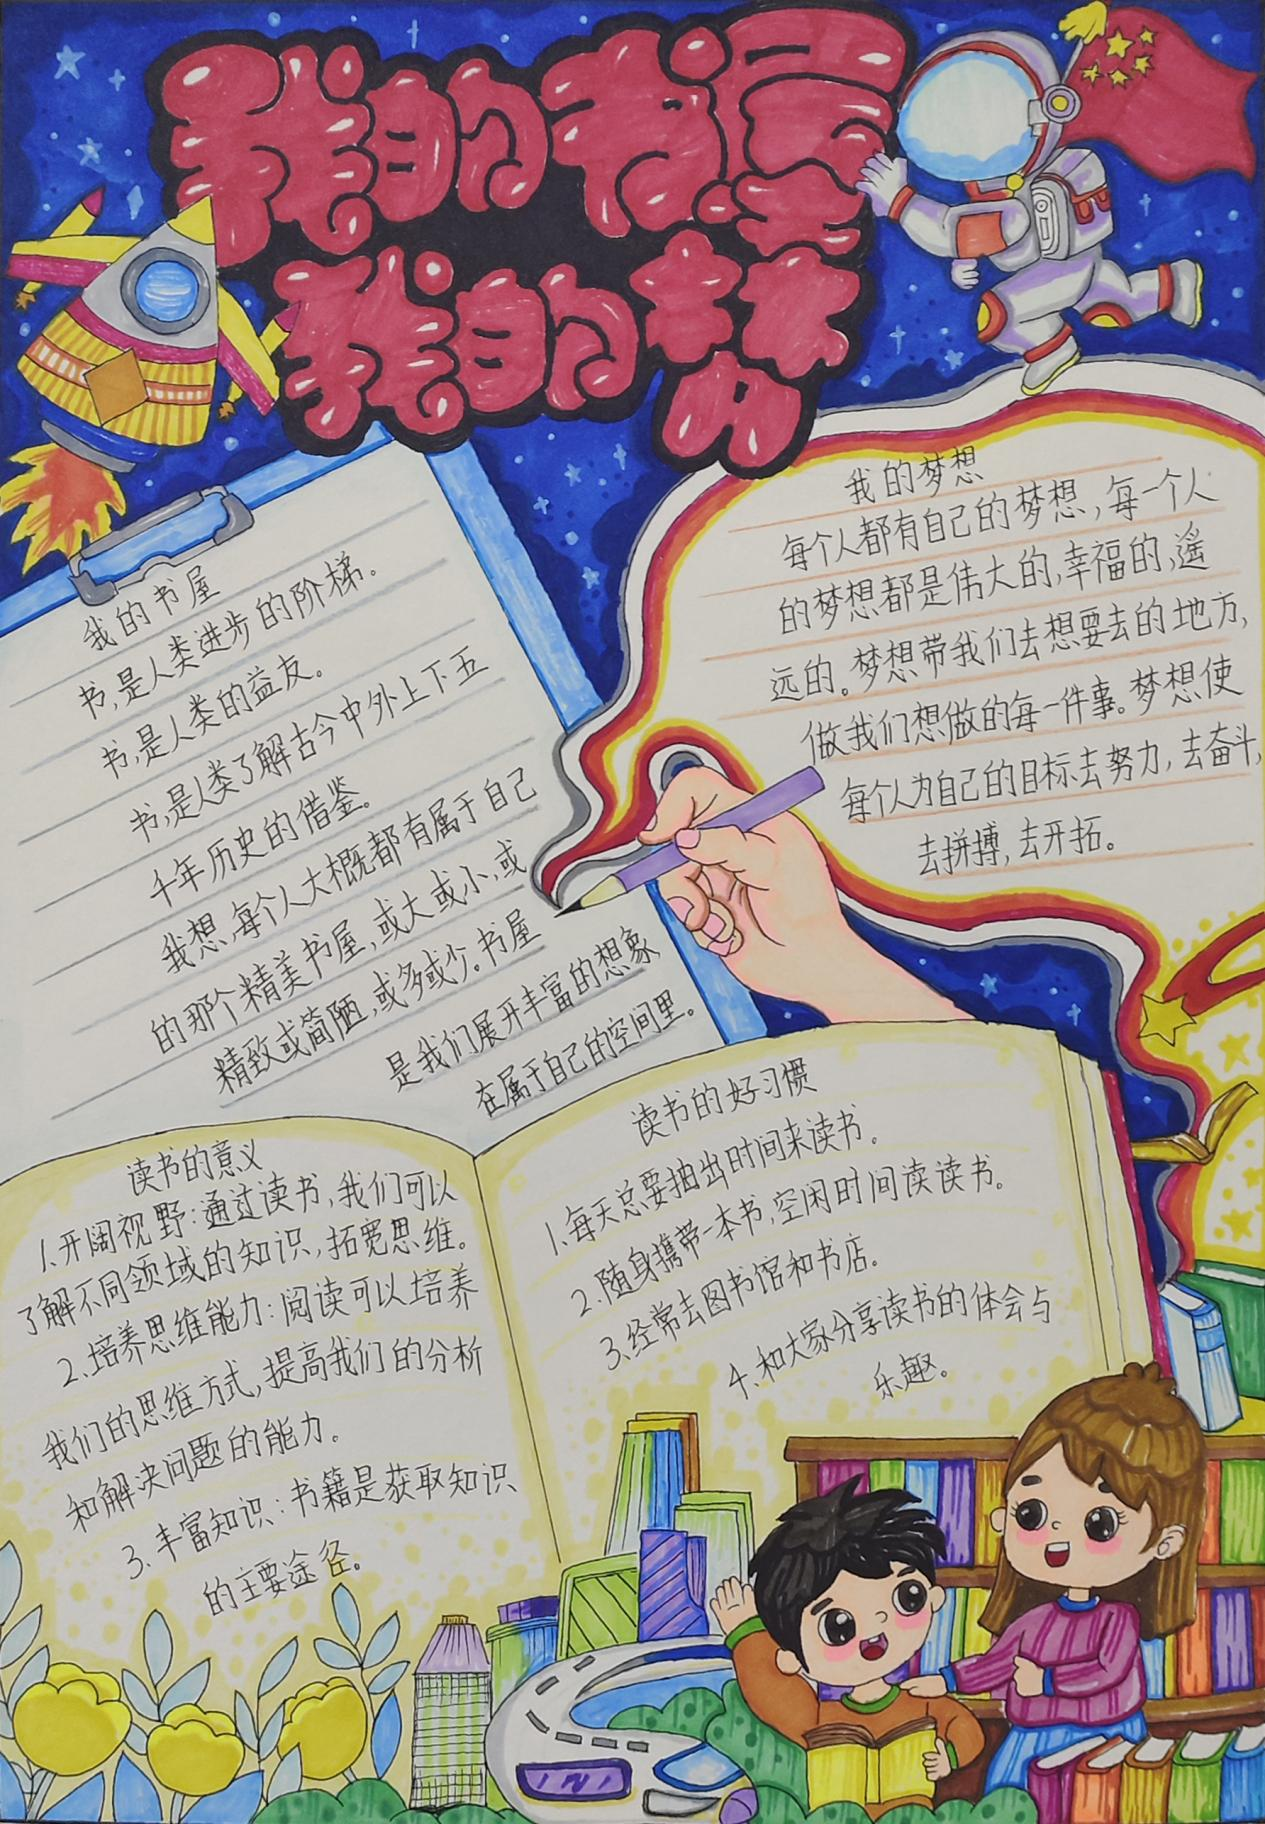 我的书屋
我的梦
我的书屋
书,是人类进步的阶梯。
书,是人类的益友。
书,是人类了解古今中外上下五
千年历史的借鉴。
我想,每个人大概都有属于自己
的那个精美书屋,或大或小,或
精致或简陋,或多或少。书屋
是我们展开丰富的想象
在属于自己的空间里。
我的梦想
每个人都有自己的梦想,每一个人
的梦想都是伟大的,幸福的,遥
远的。梦想带我们去想要去的地方,
做我们想做的每一件事。梦想使
每个人为自己的目标去努力,去奋斗,
去拼搏,去开拓。
读书的意义
1.开阔视野:通过读书,我们可以
了解不同领域的知识,拓宽思维。
2.培养思维能力:阅读可以培养
我们的思维方式,提高我们的分析
和解决问题的能力。
3.丰富知识:书籍是获取知识
的主要途径。
读书的好习惯
1.每天总要抽出时间来读书。
2.随身携带一本书,空闲时间读读书。
3.经常去图书馆和书店。
4.和大家分享读书的体会与
乐趣。